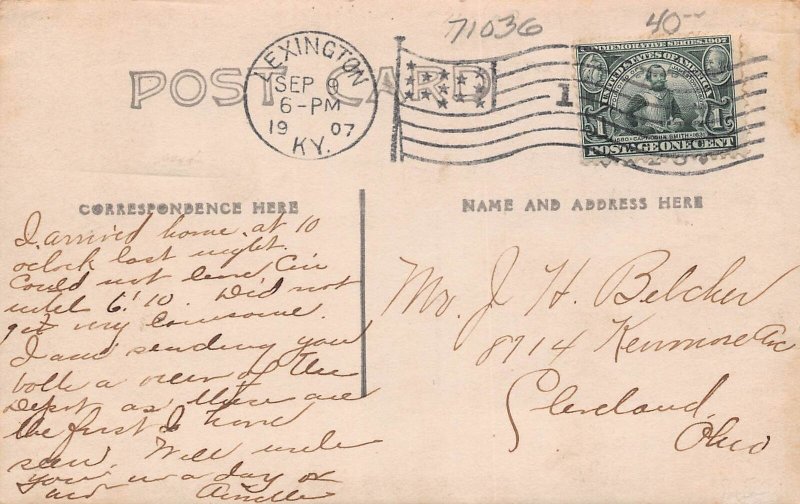 71036
40--
POST CARD
LEXINGTON
SEP 9
6-PM
1907
KY.
1
COMMEMORATIVE SERIES, 1907
UNITED STATES OF AMERICA
1580 CAPT JOHN SMITH 1631
1 1
POSTAGE ONE CENT
CORRESPONDENCE HERE
NAME AND ADDRESS HERE
I arrived home at 10
oclock last night.
Could not leave Cin
until 6:10. Did not
get very lonesome.
I am sending you
both a view of the
Depot as these are
the first I have
seen. Will write
you in a day or
Mr. J. H. Belcher
8714 Kenmore Av
Cleveland,
Ohio